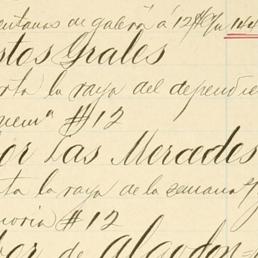 entanas de galera á 12
stos Grales
rta la raya del dependie
#12
or Las Mercedes
ta la raya de la semana
noria #12
bor de Algodon=